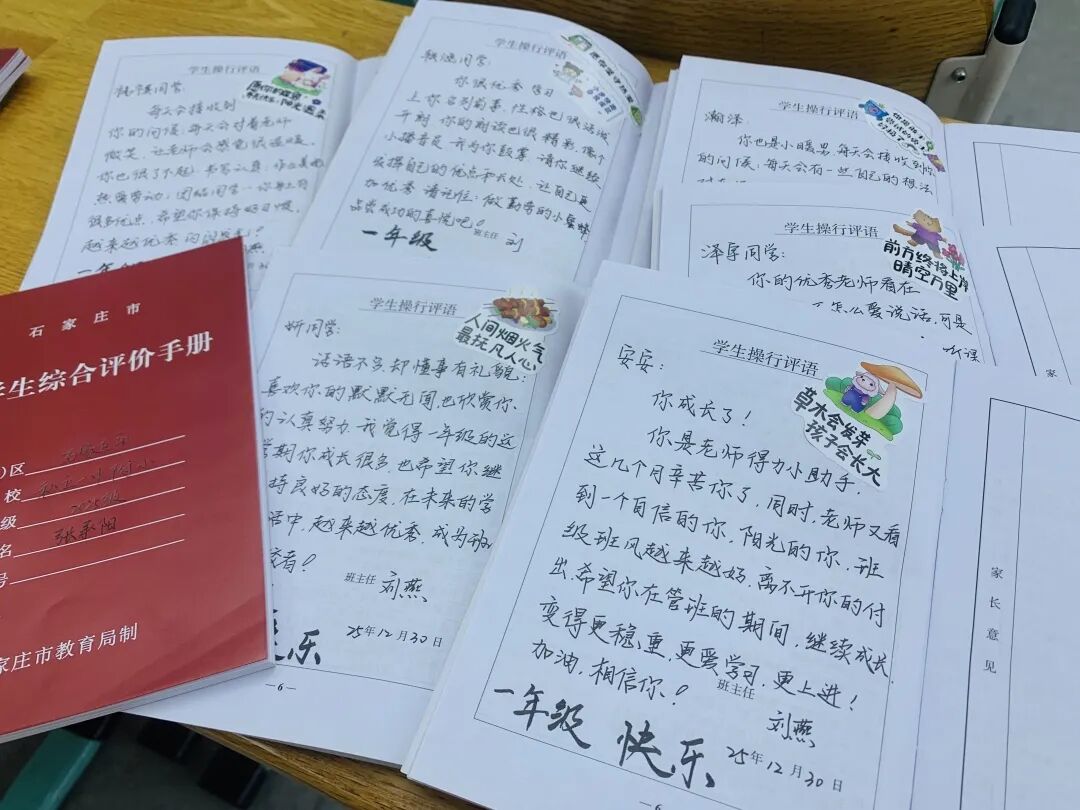 学生操行评语
愿你
阳光
同学:
每天会接收到
你的问候,每天会对着老师
微笑,让老师会感觉很温暖,
你也很了不起:书写认真,
热爱劳动,团结同学…你身上有
很多优点,希望你保持好习惯,
越来越优秀
一年级
学生操行评语
同学:
你很优秀.学习
上你名列前茅,性格也很活泼
开朗,你的朗读也很精彩,像个
小播音员,我为你鼓掌,请你继续
发挥自己的优点和长处,让自己更
加优秀.请记住:做勤劳的小蜜蜂
品尝成功的喜悦吧!
一年级
班主任 刘
学生操行评语
瀚泽:
你也是小暖男,每天会接收到你
的问候,每天会有一些自己的想法
学生操行评语
前方终将上岸
晴空万里
泽宇同学:
你的优秀老师看在
怎么爱说话,可是
听课
家
石家庄市
学生综合评价手册
区
校
级 2025级
名
号
家庄市教育局制
学生操行评语
人间烟火气
最抚凡人心
妍同学:
话语不多,却懂事有礼貌;
喜欢你的默默无闻,也欣赏你
的认真努力.我觉得一年级的这
学期你成长很多,也希望你继
持良好的态度,在未来的学
中,越来越优秀,成为班
!
班主任
刘燕
25年12月30日
乐
—6—
学生操行评语
草木会发芽
孩子会长大
安安:
你成长了!
你是老师得力小助手,
这几个月辛苦你了,同时,老师又看
到一个自信的你,阳光的你,班
级班风越来越好,离不开你的付
出,希望你在管班的期间,继续成长,
变得更稳重,更爱学习,更上进!
加油,相信你!
班主任
刘燕
一年级 快乐
25年12月30日
—6
家长意见